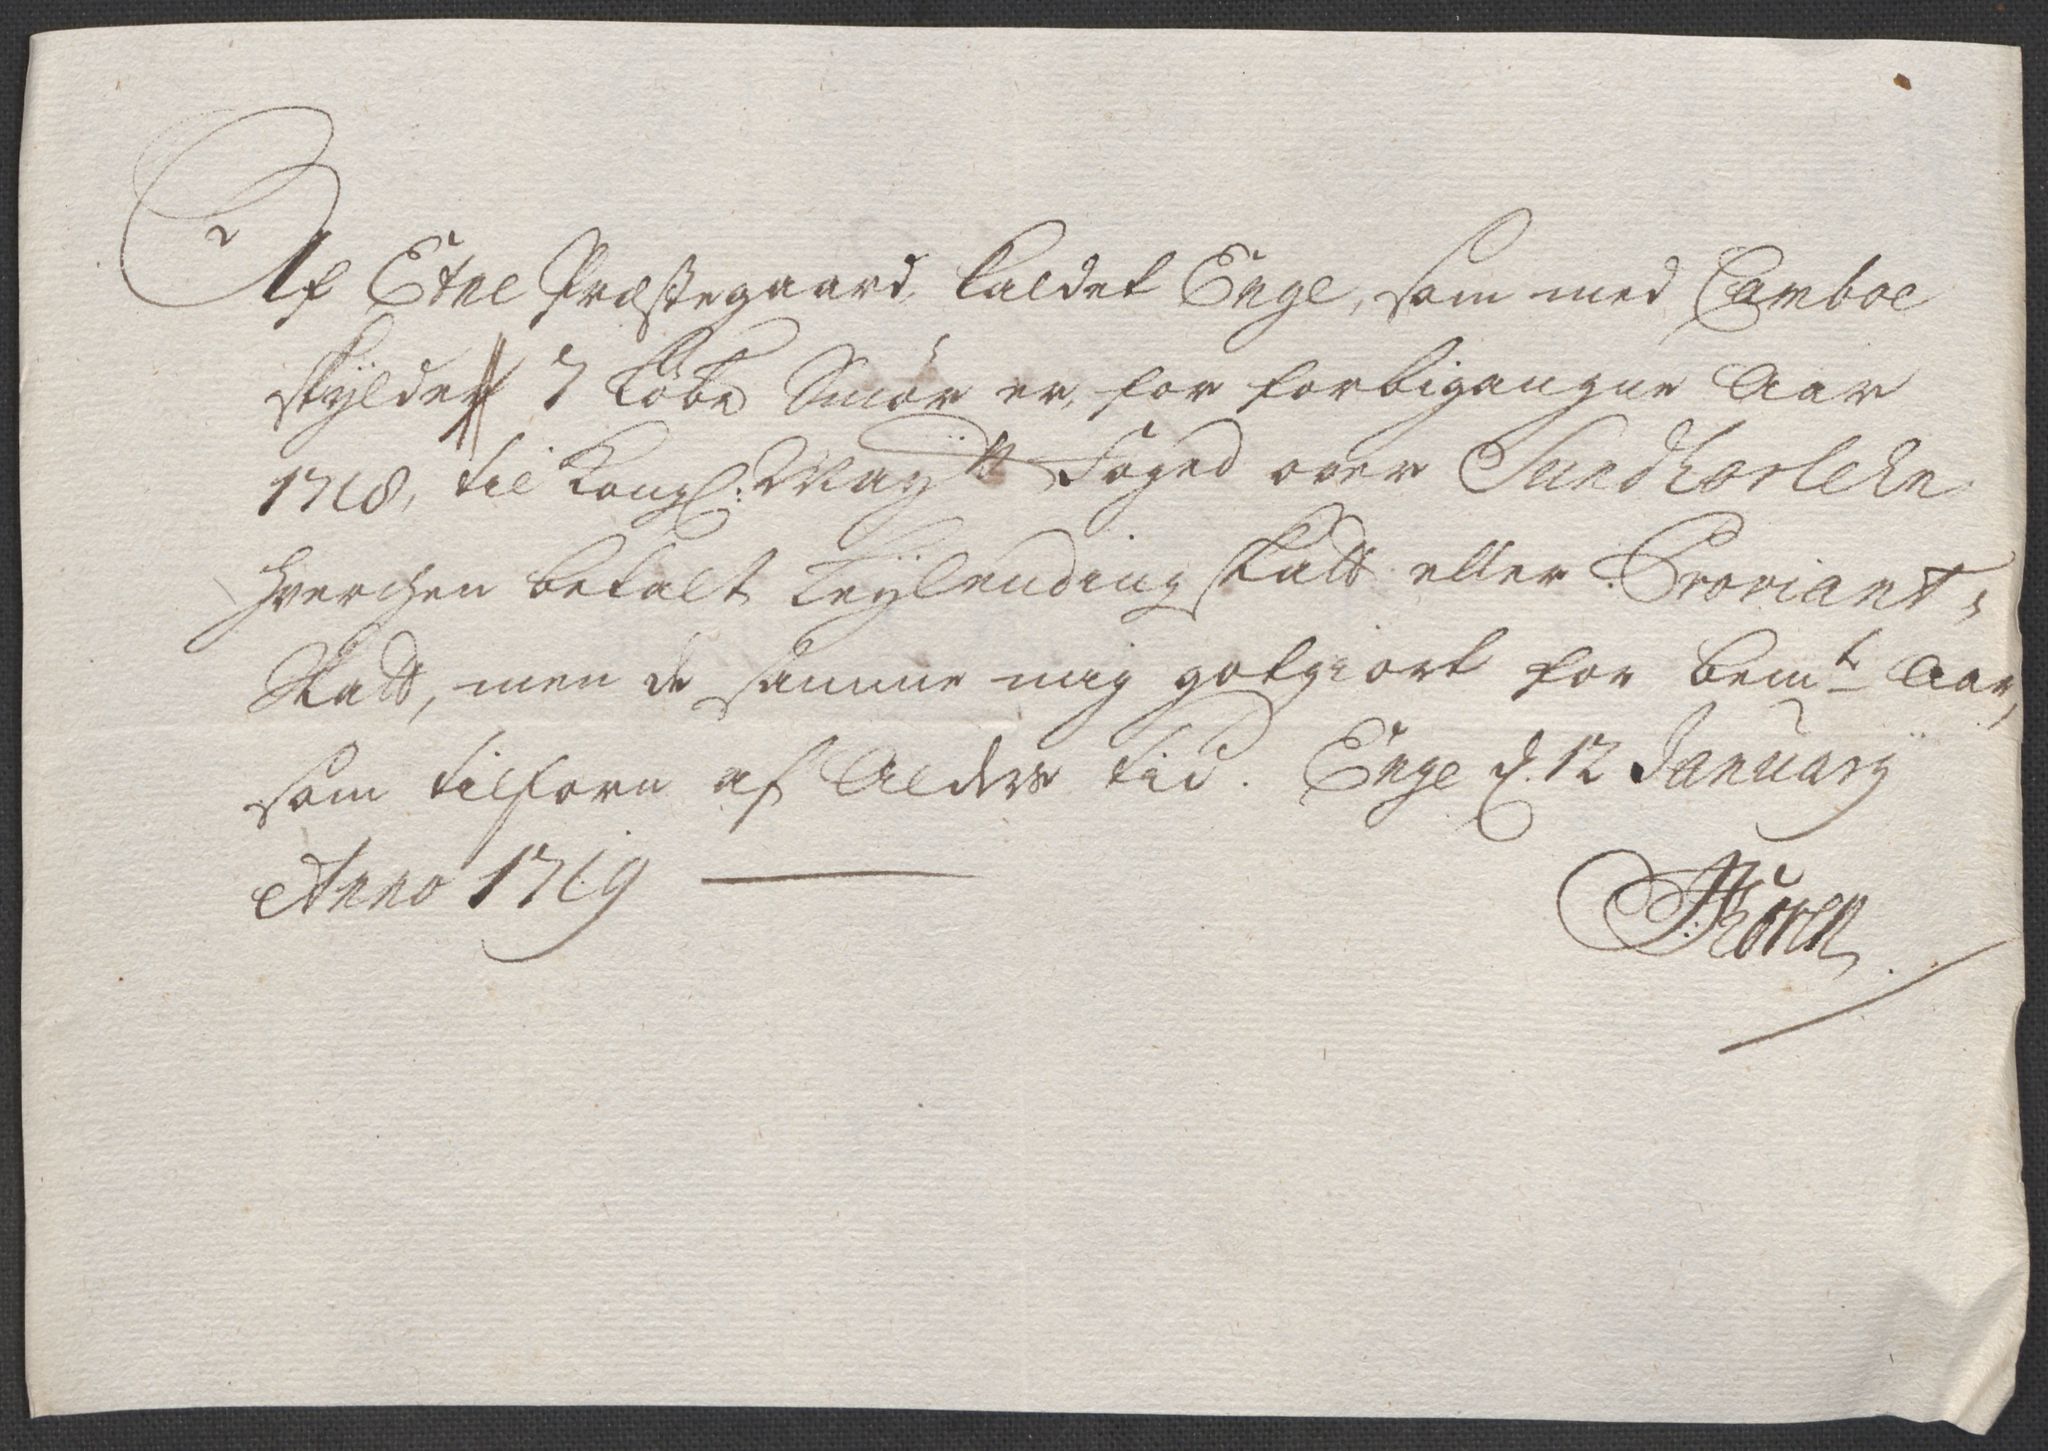 Af Etne Præstegaard, kaldet Enge, som med Camboe
skylder 7 Løbe Smør er, for forbigangne Aar
1718, til Kongl: Mayts Foged over Sundhorlehn
hverchen betalt Leylending skatt eller Proviant-
Skatt, men de samme mig gotgiort for bemt Aar,
som tilforn af Alders tid. Enge d. 12 January
Anno 1719